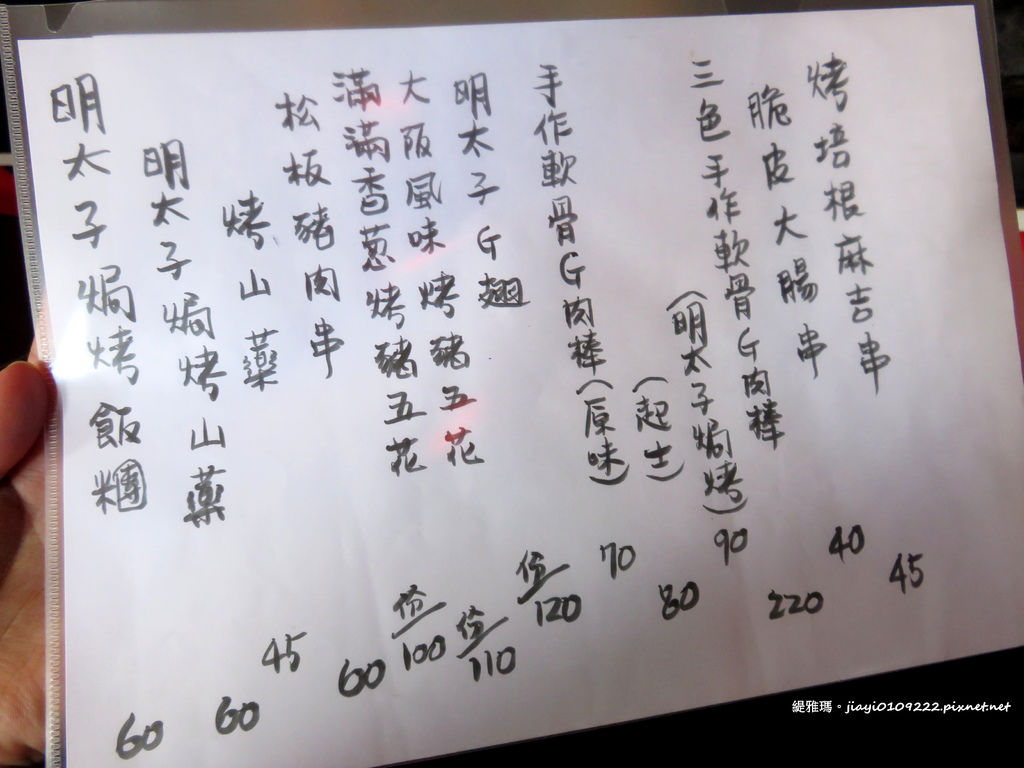 烤培根麻吉串 45
脆皮大腸串 40
三色手作軟骨G肉棒 220
(明太子焗烤) 90
(起士) 80
手作軟骨G肉棒(原味) 70
明太子G翅 份/120
大阪風味烤豬五花 份/110
滿滿香蔥烤豬五花 份/100
松板豬肉串 60
烤山藥 45
明太子焗烤山藥 60
明太子焗烤飯糰 60
緹雅瑪。jiayi0109222.pixnet.net